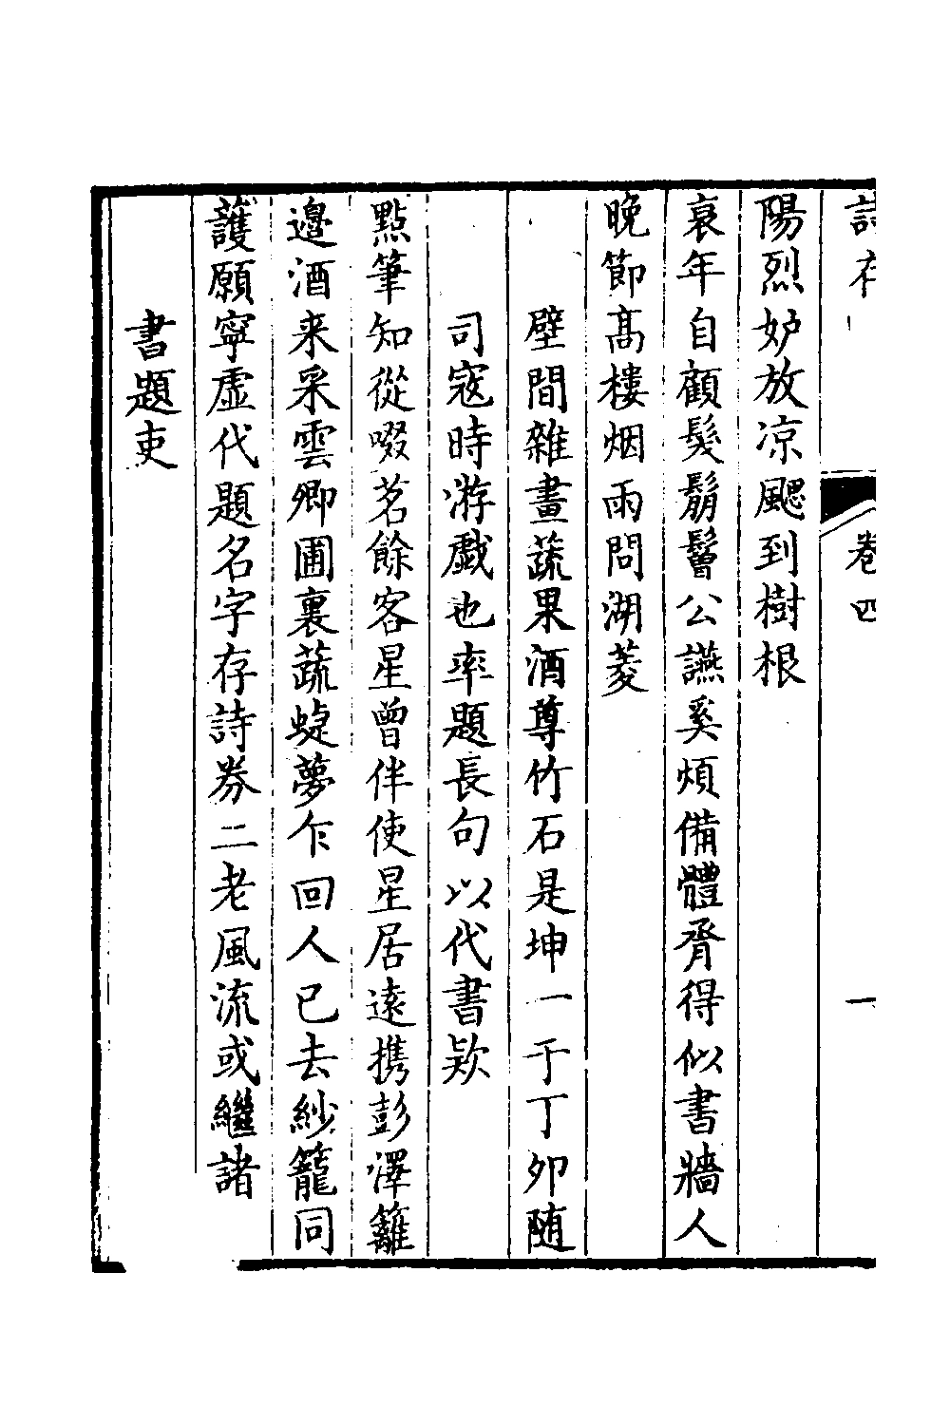 詩存 卷四 一
陽烈妒放凉颸到樹根
衰年自顧髮鬅鬙公讌奚煩備體胥得似書牆人
晚節髙樓烟雨問湖菱
壁間雜畫蔬果酒尊竹石是坤一于丁夘随
司寇時游戲也率題長句以代書欵
點筆知從啜茗餘客星曾伴使星居遠携彭澤籬
邉酒来采雲卿圃裏蔬蝶夢乍回人已去紗籠同
護願寧虚代題名字存詩券二老風流或繼諸
書題吏